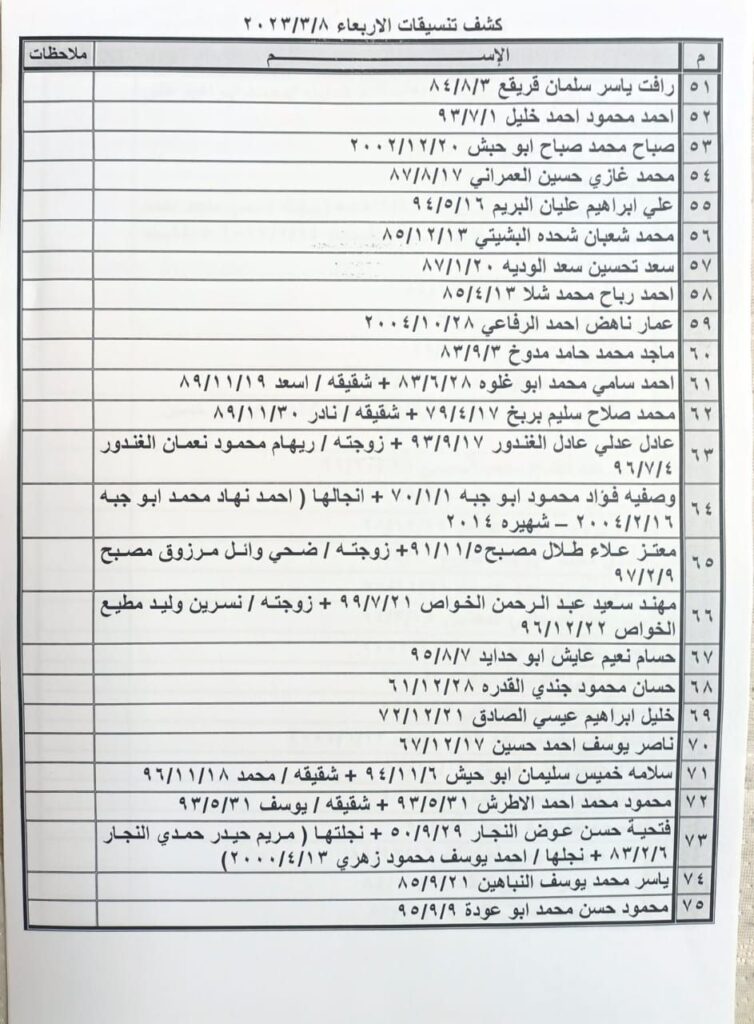 كشف تنسيقات الاربعاء ٢٠٢٣/٣/٨
م الإســـــــم ملاحظات
٥١ رافت ياسر سلمان قريقع ٨٤/٨/٣
٥٢ احمد محمود احمد خليل ٩٣/٧/١
٥٣ صباح محمد صباح ابو حبش ٢٠٠٢/١٢/٢٠
٥٤ محمد غازي حسين العمراني ٨٧/٨/١٧
٥٥ علي ابراهيم عليان البريم ٩٤/٥/١٦
٥٦ محمد شعبان شحده البشيتي ٨٥/١٢/١٣
٥٧ سعد تحسين سعد الوديه ٨٧/١/٢٠
٥٨ احمد رباح محمد شلا ٨٥/٤/١٣
٥٩ عمار ناهض احمد الرفاعي ٢٠٠٤/١٠/٢٨
٦٠ ماجد محمد حامد مدوخ ٨٣/٩/٣
٦١ احمد سامي محمد ابو غلوه ٨٣/٦/٢٨ + شقيقه / اسعد ٨٩/١١/١٩
٦٢ محمد صلاح سليم بربخ ٧٩/٤/١٧ + شقيقه / نادر ٨٩/١١/٣٠
٦٣ عادل عدلي عادل الغندور ٩٣/٩/١٧ + زوجته / ريهام محمود نعمان الغندور
٩٦/٧/٤
٦٤ وصفيه فؤاد محمود ابو جبه ٧٠/١/١ + انجالها ( احمد نهاد محمد ابو جبه
٢٠٠٤/٢/١٦ – شهيره ٢٠١٤
٦٥ معتز علاء طلال مصبح٩١/١١/٥+ زوجته / ضحي وائل مرزوق مصبح
٩٧/٢/٩
٦٦ مهند سعيد عبد الرحمن الخواص ٩٩/٧/٢١ + زوجته / نسرين وليد مطيع
الخواص ٩٦/١٢/٢٢
٦٧ حسام نعيم عايش ابو حدايد ٩٥/٨/٧
٦٨ حسان محمود جندي القدره ٦١/١٢/٢٨
٦٩ خليل ابراهيم عيسي الصادق ٧٢/١٢/٢١
٧٠ ناصر يوسف احمد حسين ٦٧/١٢/١٧
٧١ سلامه خميس سليمان ابو حيش ٩٤/١١/٦ + شقيقه / محمد ٩٦/١١/١٨
٧٢ محمود محمد احمد الاطرش ٩٣/٥/٣١ + شقيقه / يوسف ٩٣/٥/٣١
٧٣ فتحية حسن عوض النجار ٥٠/٩/٢٩ + نجلتها ( مريم حيدر حمدي النجار
٨٣/٢/٦ + نجلها / احمد يوسف محمود زهري ٢٠٠٠/٤/١٣)
٧٤ ياسر محمد يوسف النباهين ٨٥/٩/٢١
٧٥ محمود حسن محمد ابو عودة ٩٥/٩/٩